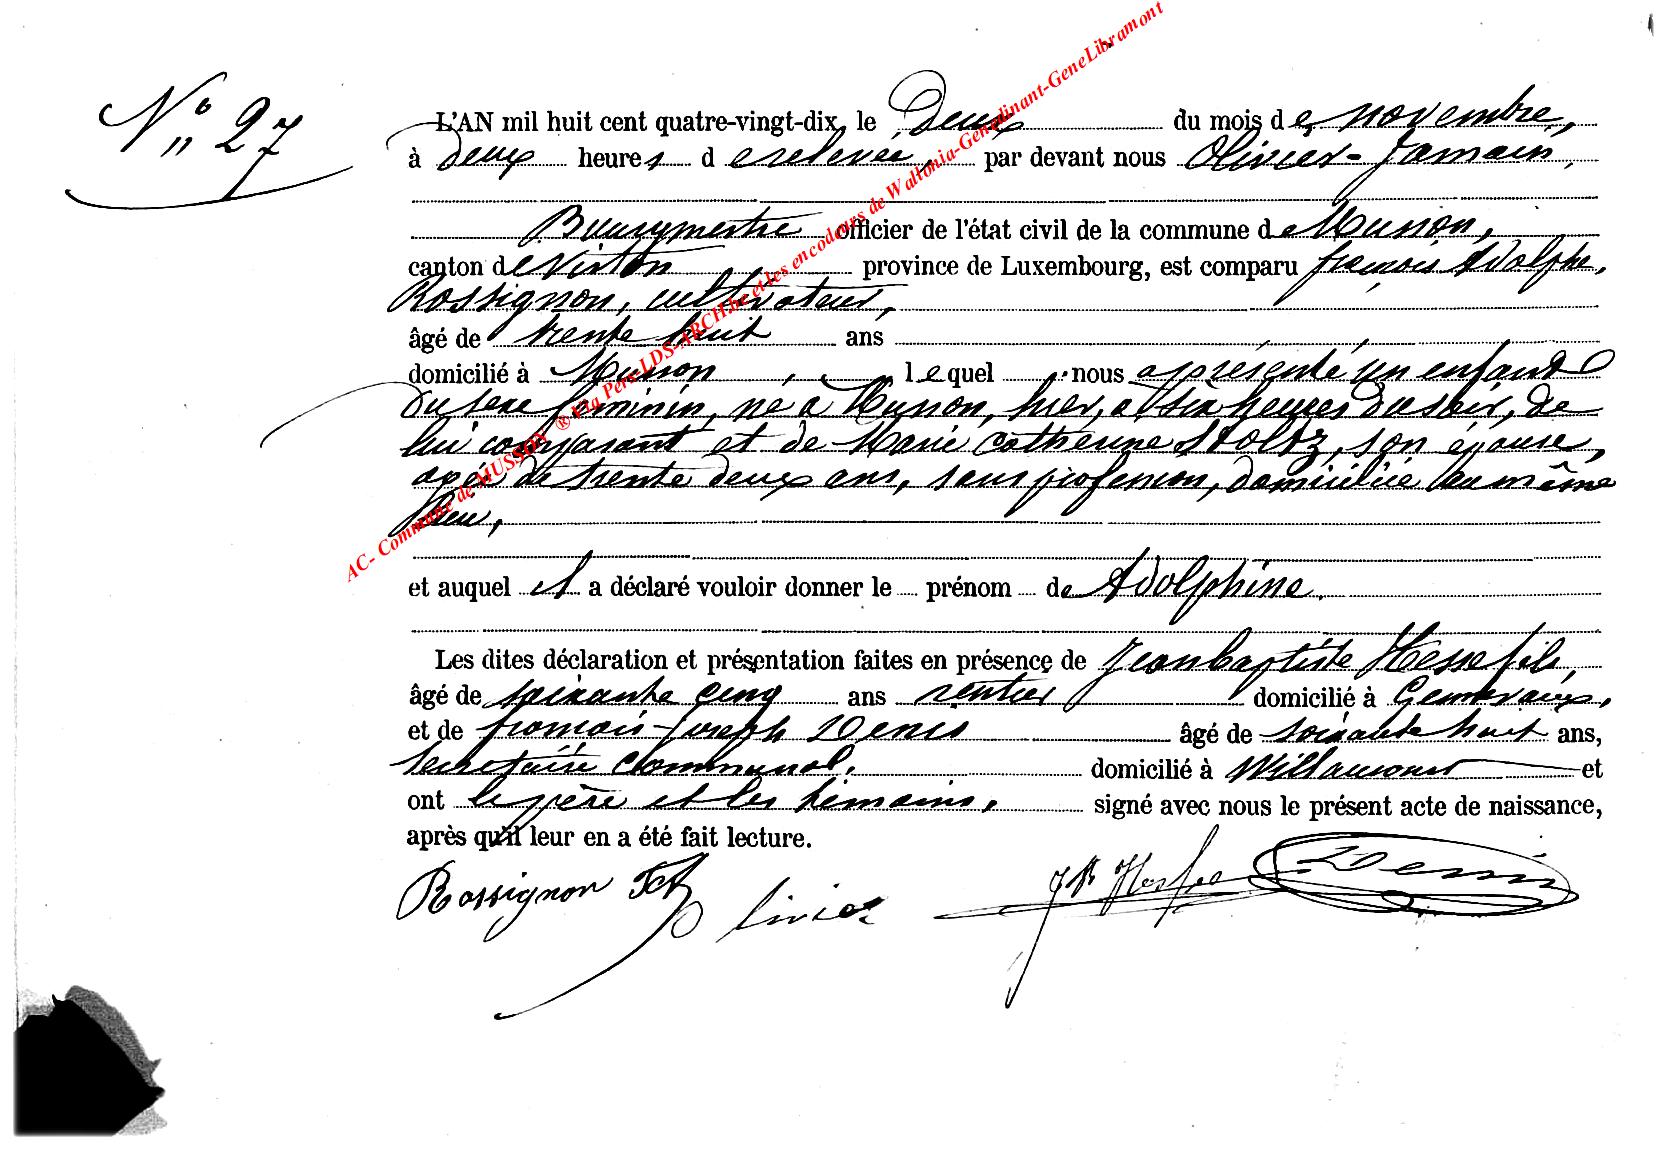 N° 27
L'AN mil huit cent quatre-vingt-dix, le Deux du mois de novembre,
à deux heures de relevée, par devant nous Olivier-Jamain,
Bourgmestre officier de l'état civil de la commune de Musson,
canton de Virton province de Luxembourg, est comparu françois Adolphe,
Rossignon, cultivateur,
âgé de trente huit ans
domicilié à Musson, lequel nous a présenté un enfant
du sexe féminin, né à Musson, hier, à six heures du soir, de
lui comparant et de Marie Catherine Stoltz, son épouse,
agée de trente deux ans, sans profession, domiciliée au même
lieu,
et auquel il a déclaré vouloir donner le prénom de Adolphine.
Les dites déclaration et présentation faites en présence de Jean baptiste Hesse fils,
âgé de soixante cinq ans rentier domicilié à Gennevaux,
et de françois-Joseph Denis âgé de soixante huit ans,
secrétaire communal, domicilié à Willancourt et
ont le père et les témoins, signé avec nous le présent acte de naissance,
après qu'il leur en a été fait lecture.
Rossignon Olivier JB Hesse Denis
AC- Commune de MUSSON ® Eta Pers-LDS-ARCH.be et les encodeurs de Wallonia-Genedinant-GeneLibramont